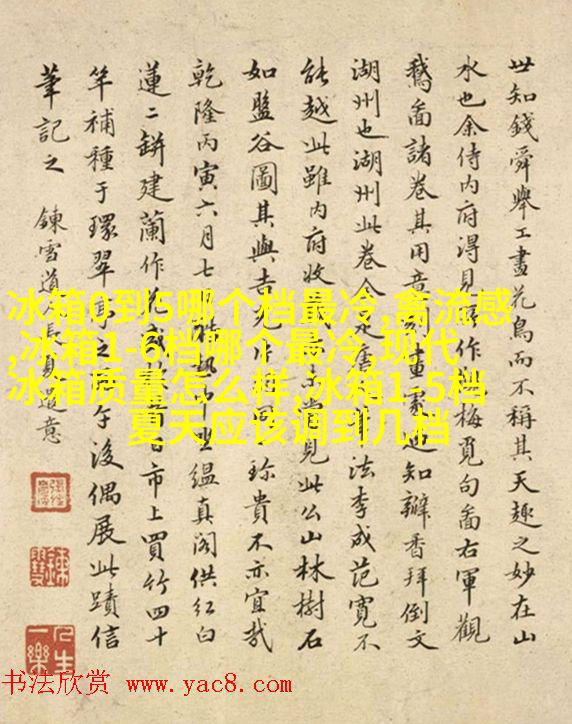 世知錢舜舉工畫花鳥而不稱其天趣之妙在山
水也余侍內府得見作梅覓句畵右軍觀
鵝畵諸卷其用意重知瓣香拜倒文
湖州也湖州此卷今法李成范寬不
能越此雖內府收見此公山林樹石
如盤谷圖其與吉光珍貴不亦宜哉
乾隆丙寅六月七熱坐緼真閣供紅白
蓮二缾建蘭作市上買竹四十
竿補種于環翠亭之午後偶展此蹟信
筆記之 鍊雪道長遣意
人生一樂
冰箱0到5哪个档最冷,禽流感
,冰箱1-6档哪个最冷,现代
冰箱质量怎么样,冰箱1-5档
夏天应该调到几档
书法欣赏 www.yac8.com